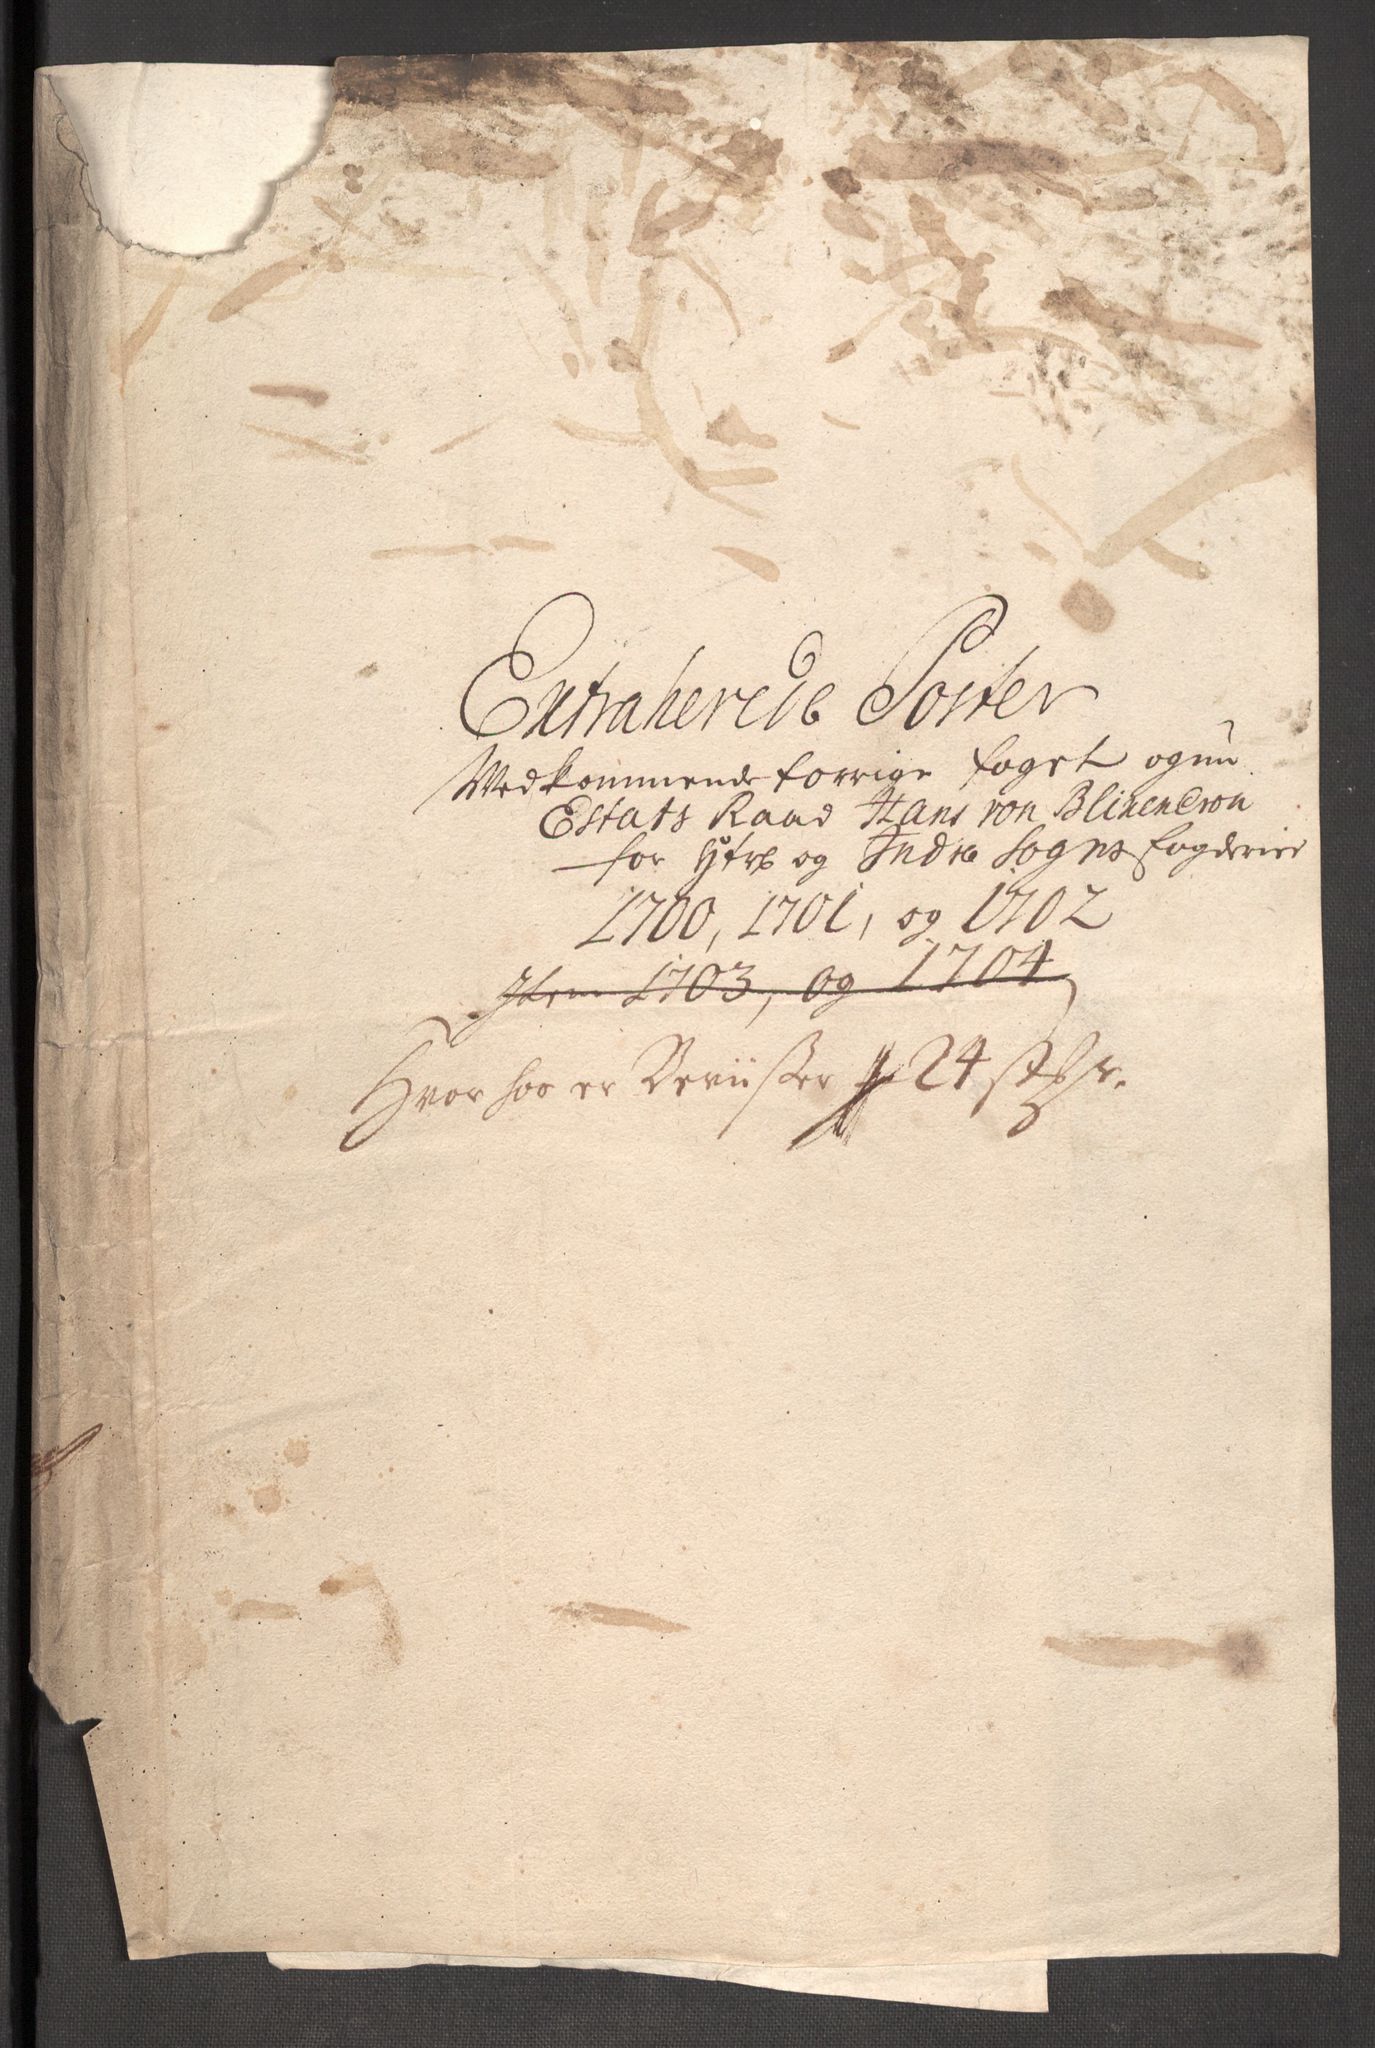 Extraherede Poster
Wedkommende forrige foget og nu
Estats Raad Hans von Blixencron
for Ytre og Indre Sogns fogderier
1700, 1701, og 1702
Item 1703, og 1704
Hvor hos er Beviiser 24 st